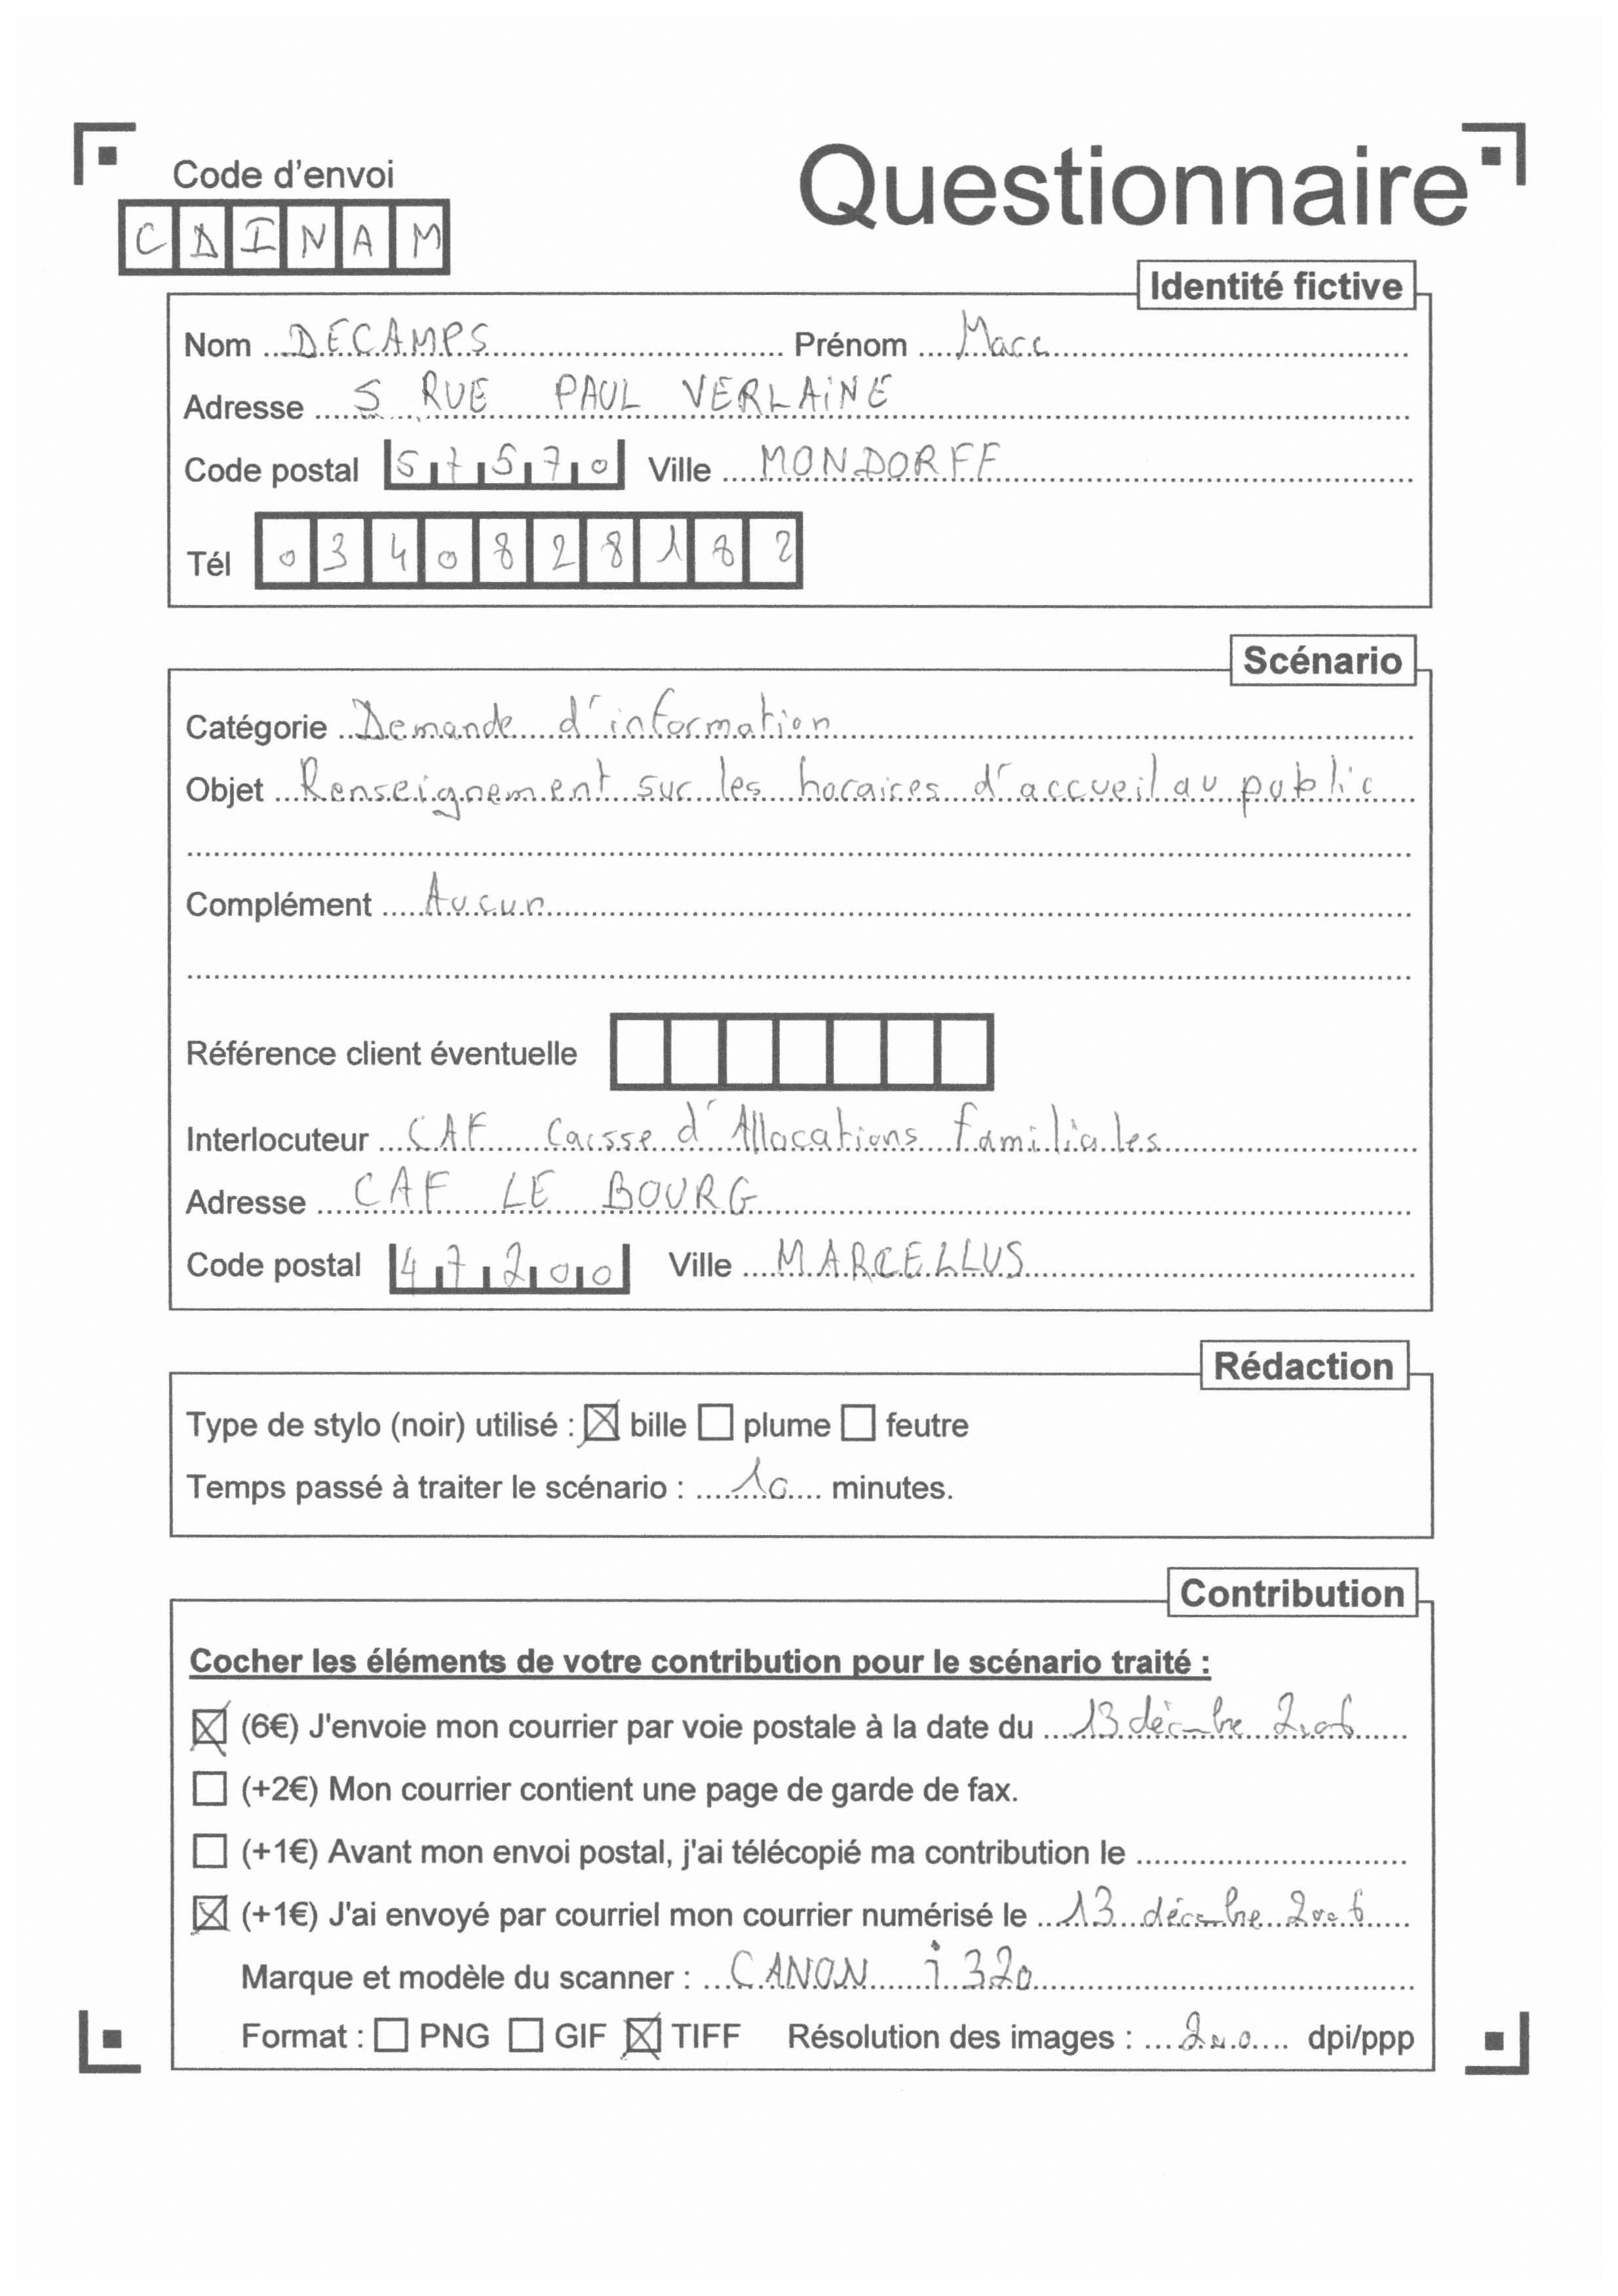 Code d'envoi
Questionnaire
CDINAM
Identité fictive
Nom DECAMPS Prénom Marc
Adresse 5 RUE PAUL VERLAINE
Code postal 57570 Ville MONDORFF
Tél 0340828182
Scénario
Catégorie Demande d'information
Objet Renseignement sur les horaires d'accueil au public
Complément Aucun
Référence client éventuelle
Interlocuteur CAF Caisse d'Allocations familiales
Adresse CAF LE BOURG
Code postal 47200 Ville MARCELLUS
Rédaction
Type de stylo (noir) utilisé : ☒ bille ☐ plume ☐ feutre
Temps passé à traiter le scénario : 10 minutes.
Contribution
Cocher les éléments de votre contribution pour le scénario traité :
☒ (6€) J'envoie mon courrier par voie postale à la date du 13 décembre 2006
☐ (+2€) Mon courrier contient une page de garde de fax.
☐ (+1€) Avant mon envoi postal, j'ai télécopié ma contribution le
☒ (+1€) J'ai envoyé par courriel mon courrier numérisé le 13 décembre 2006
Marque et modèle du scanner : CANON i 320
Format : ☐ PNG ☐ GIF ☒ TIFF Résolution des images : 200 dpi/ppp